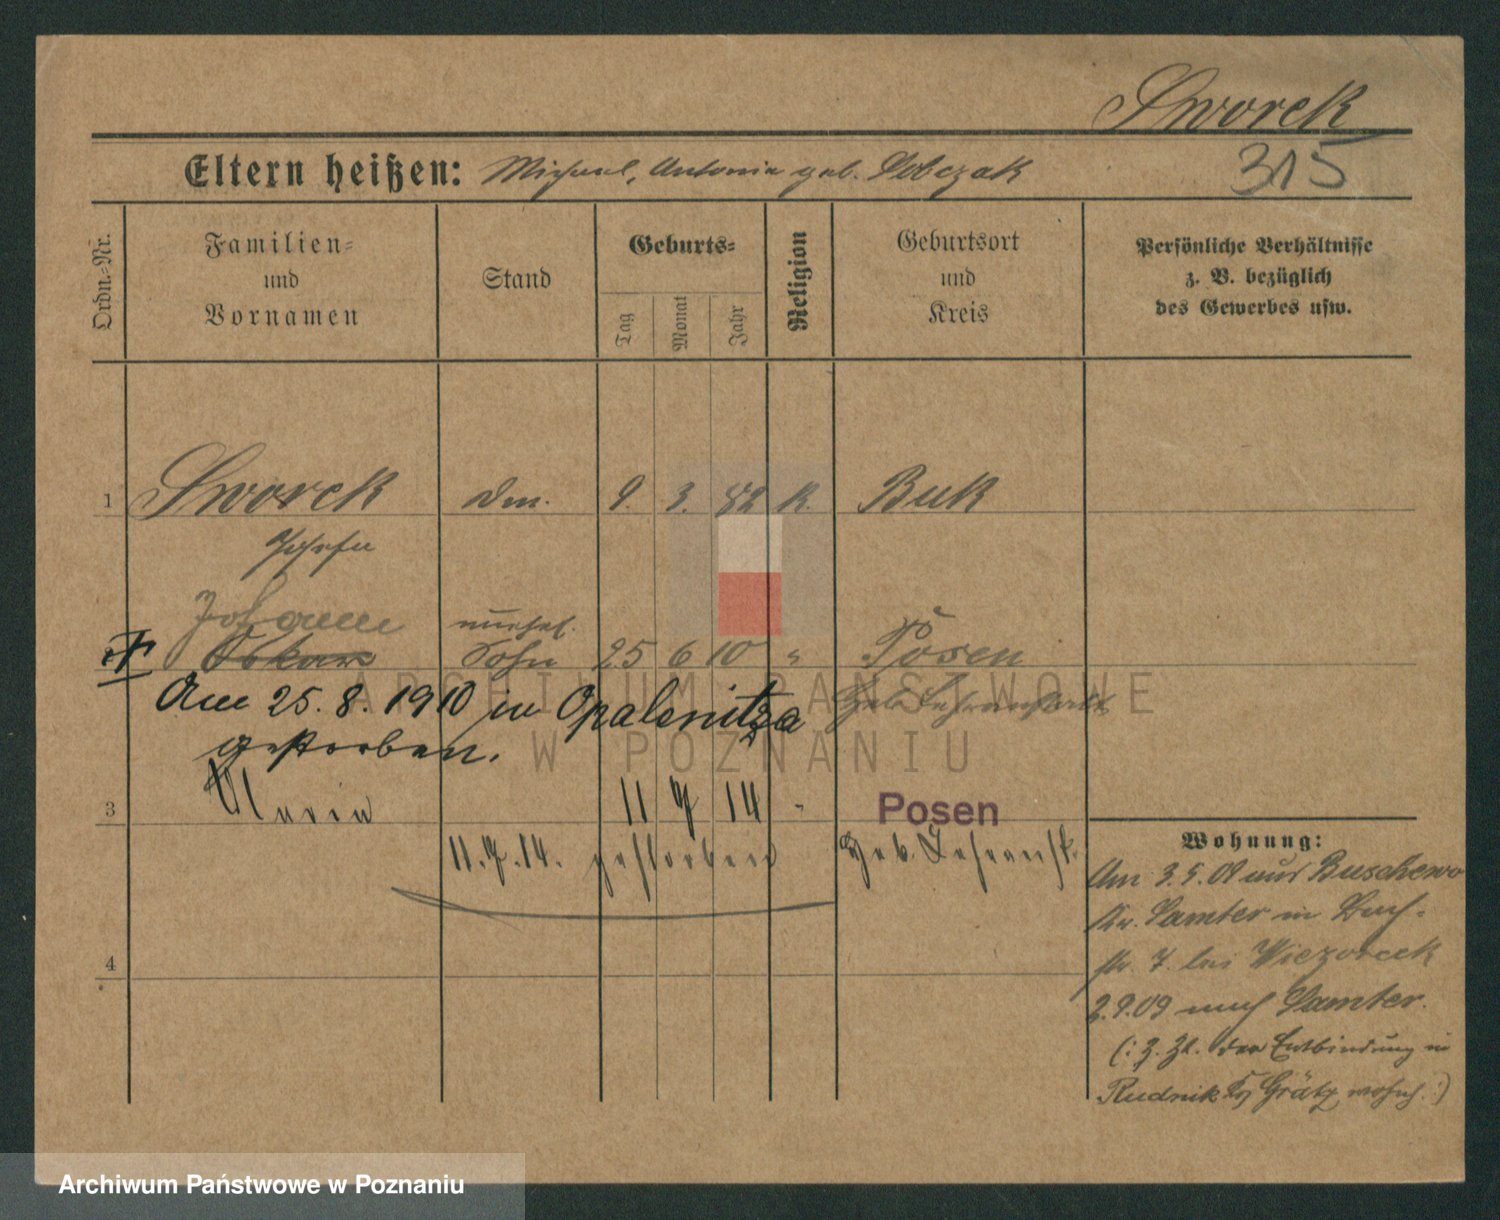 Sworek
Eltern heißen: Michael, Antonie geb. Sobczak
315
Ordn.=Nr.
Familien=
und
Vornamen
Stand
Geburts=
Tag
Monat
Jahr
Religion
Geburtsort
und
Kreis
Persönliche Verhältnisse
z. B. bezüglich
des Gewerbes usw.
1 Sworek 9. 3. 82 K. Buk
Josefa
Johann unehel.
Oskar Sohn 25 6 10 " Posen
Am 25. 8. 1910 in Opalenitza
Heb. Lehranstalt
gestorben.
3 Maria 11 7 14 " Posen
11.7.14. gestorben Heb. Lehranst.
4
Wohnung:
Am 3.5.09 aus Buschewo
Kr. Samter in
str. 7. bei Wiezorek
2.9.09 nach Samter.
(: z. Zt. der Entbindung in
Rudnik Grätz wohnh. :)
ARCHIWUM PAŃSTWOWE
W POZNANIU
Archiwum Państwowe w Poznaniu